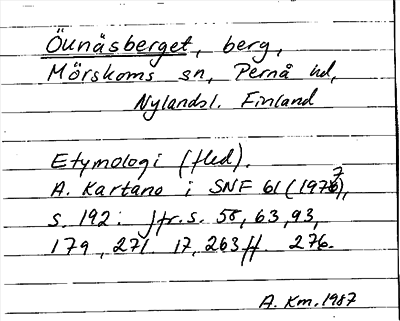 Öunäsberget, berg,
Mörskoms sn, Pernå hd,
Nylandsl. Finland
Etymologi (fled).
A. Kartano i SNF 61 (1977),
s. 192. Jfr. s. 58, 63, 93,
179, 271 17, 263 ff. 276.
A. Km. 1987